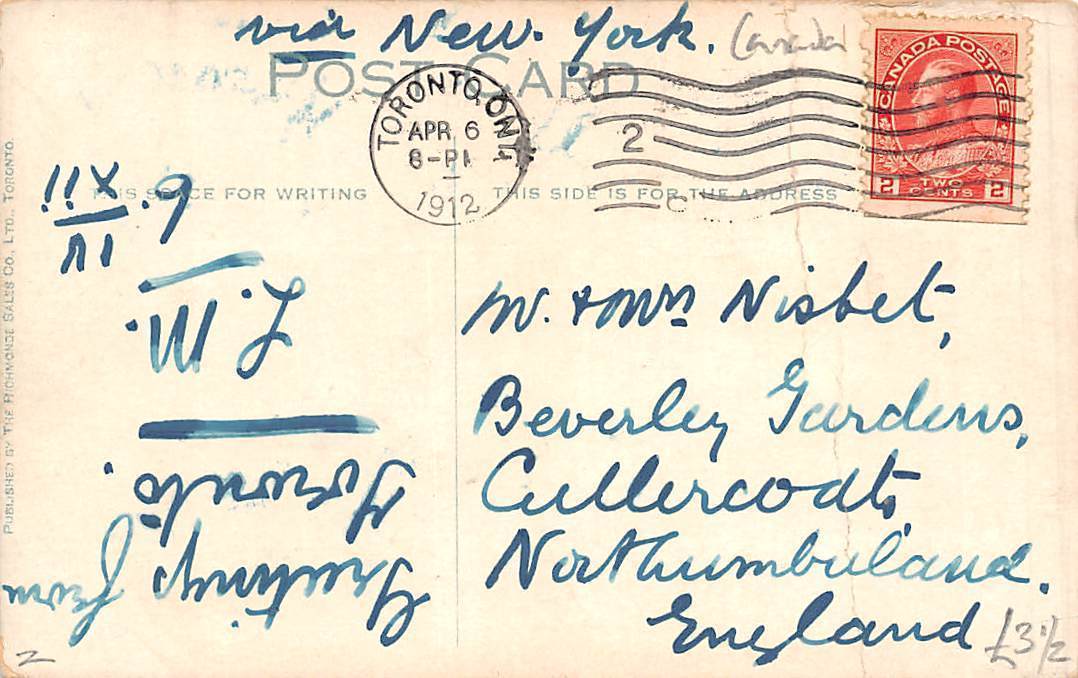 via New York. Canada
POST CARD
TORONTO, ONT.
APR 6
8-PM
1912
2
C
CANADA POSTAGE
2 TWO CENTS 2
THIS SPACE FOR WRITING
THIS SIDE IS FOR THE ADDRESS
Mr. & Mrs Nisbet,
Beverley Gardens,
Cullercoats,
Northumberland.
England
£3½
Greetings from
Toronto.
L. M.
6. IV
XII
PUBLISHED BY THE RICHMONDE SALES CO., LTD., TORONTO.
2